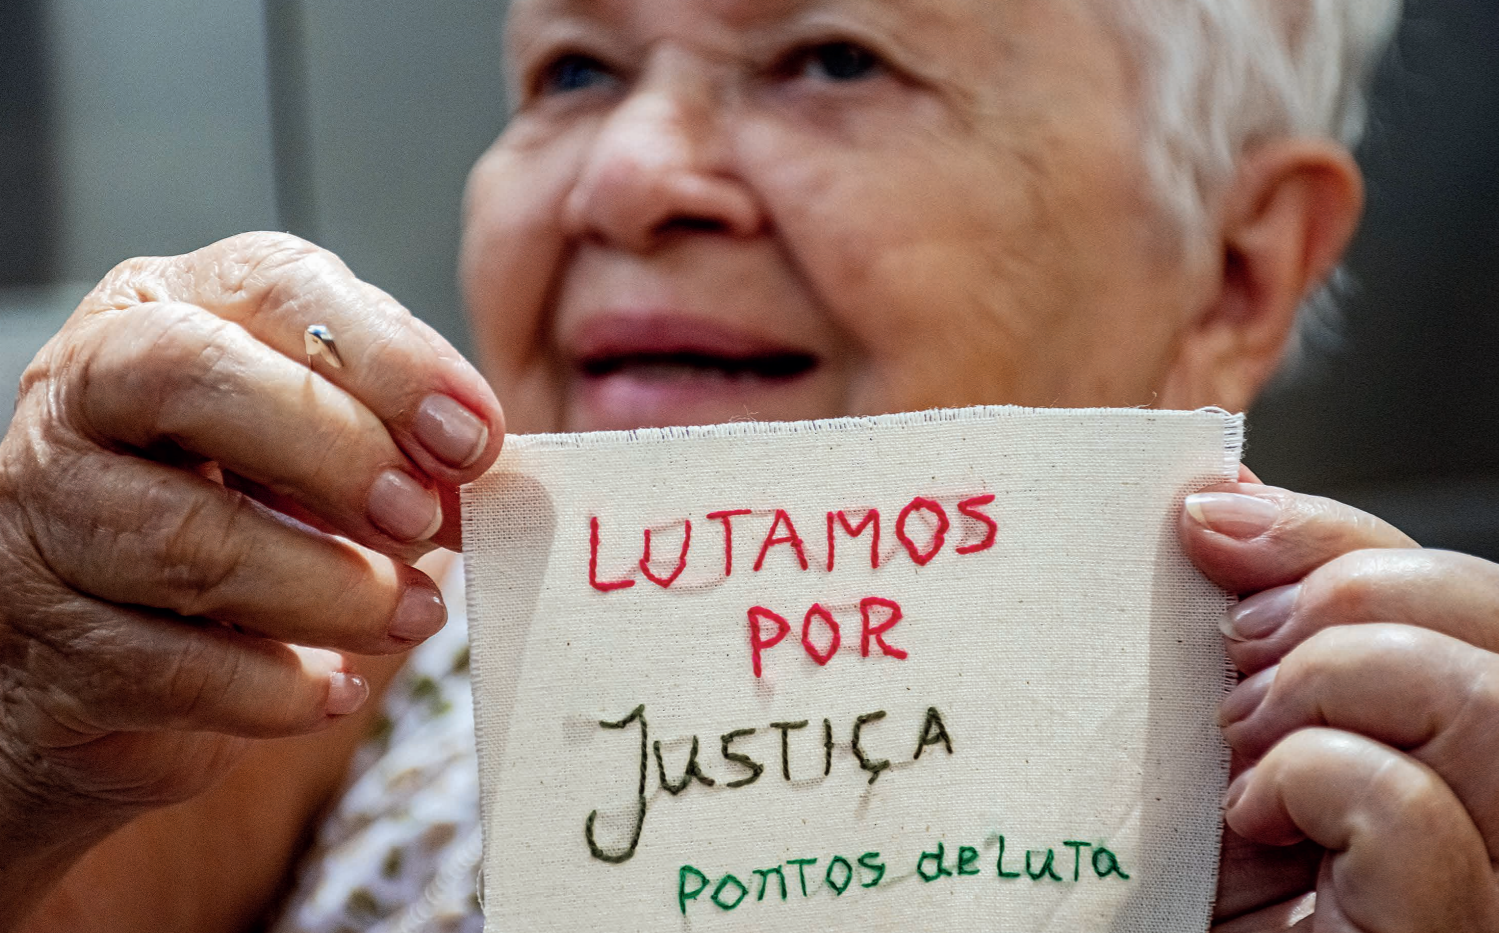 LUTAMOS
POR
JUSTIÇA
PONTOS de LUTA